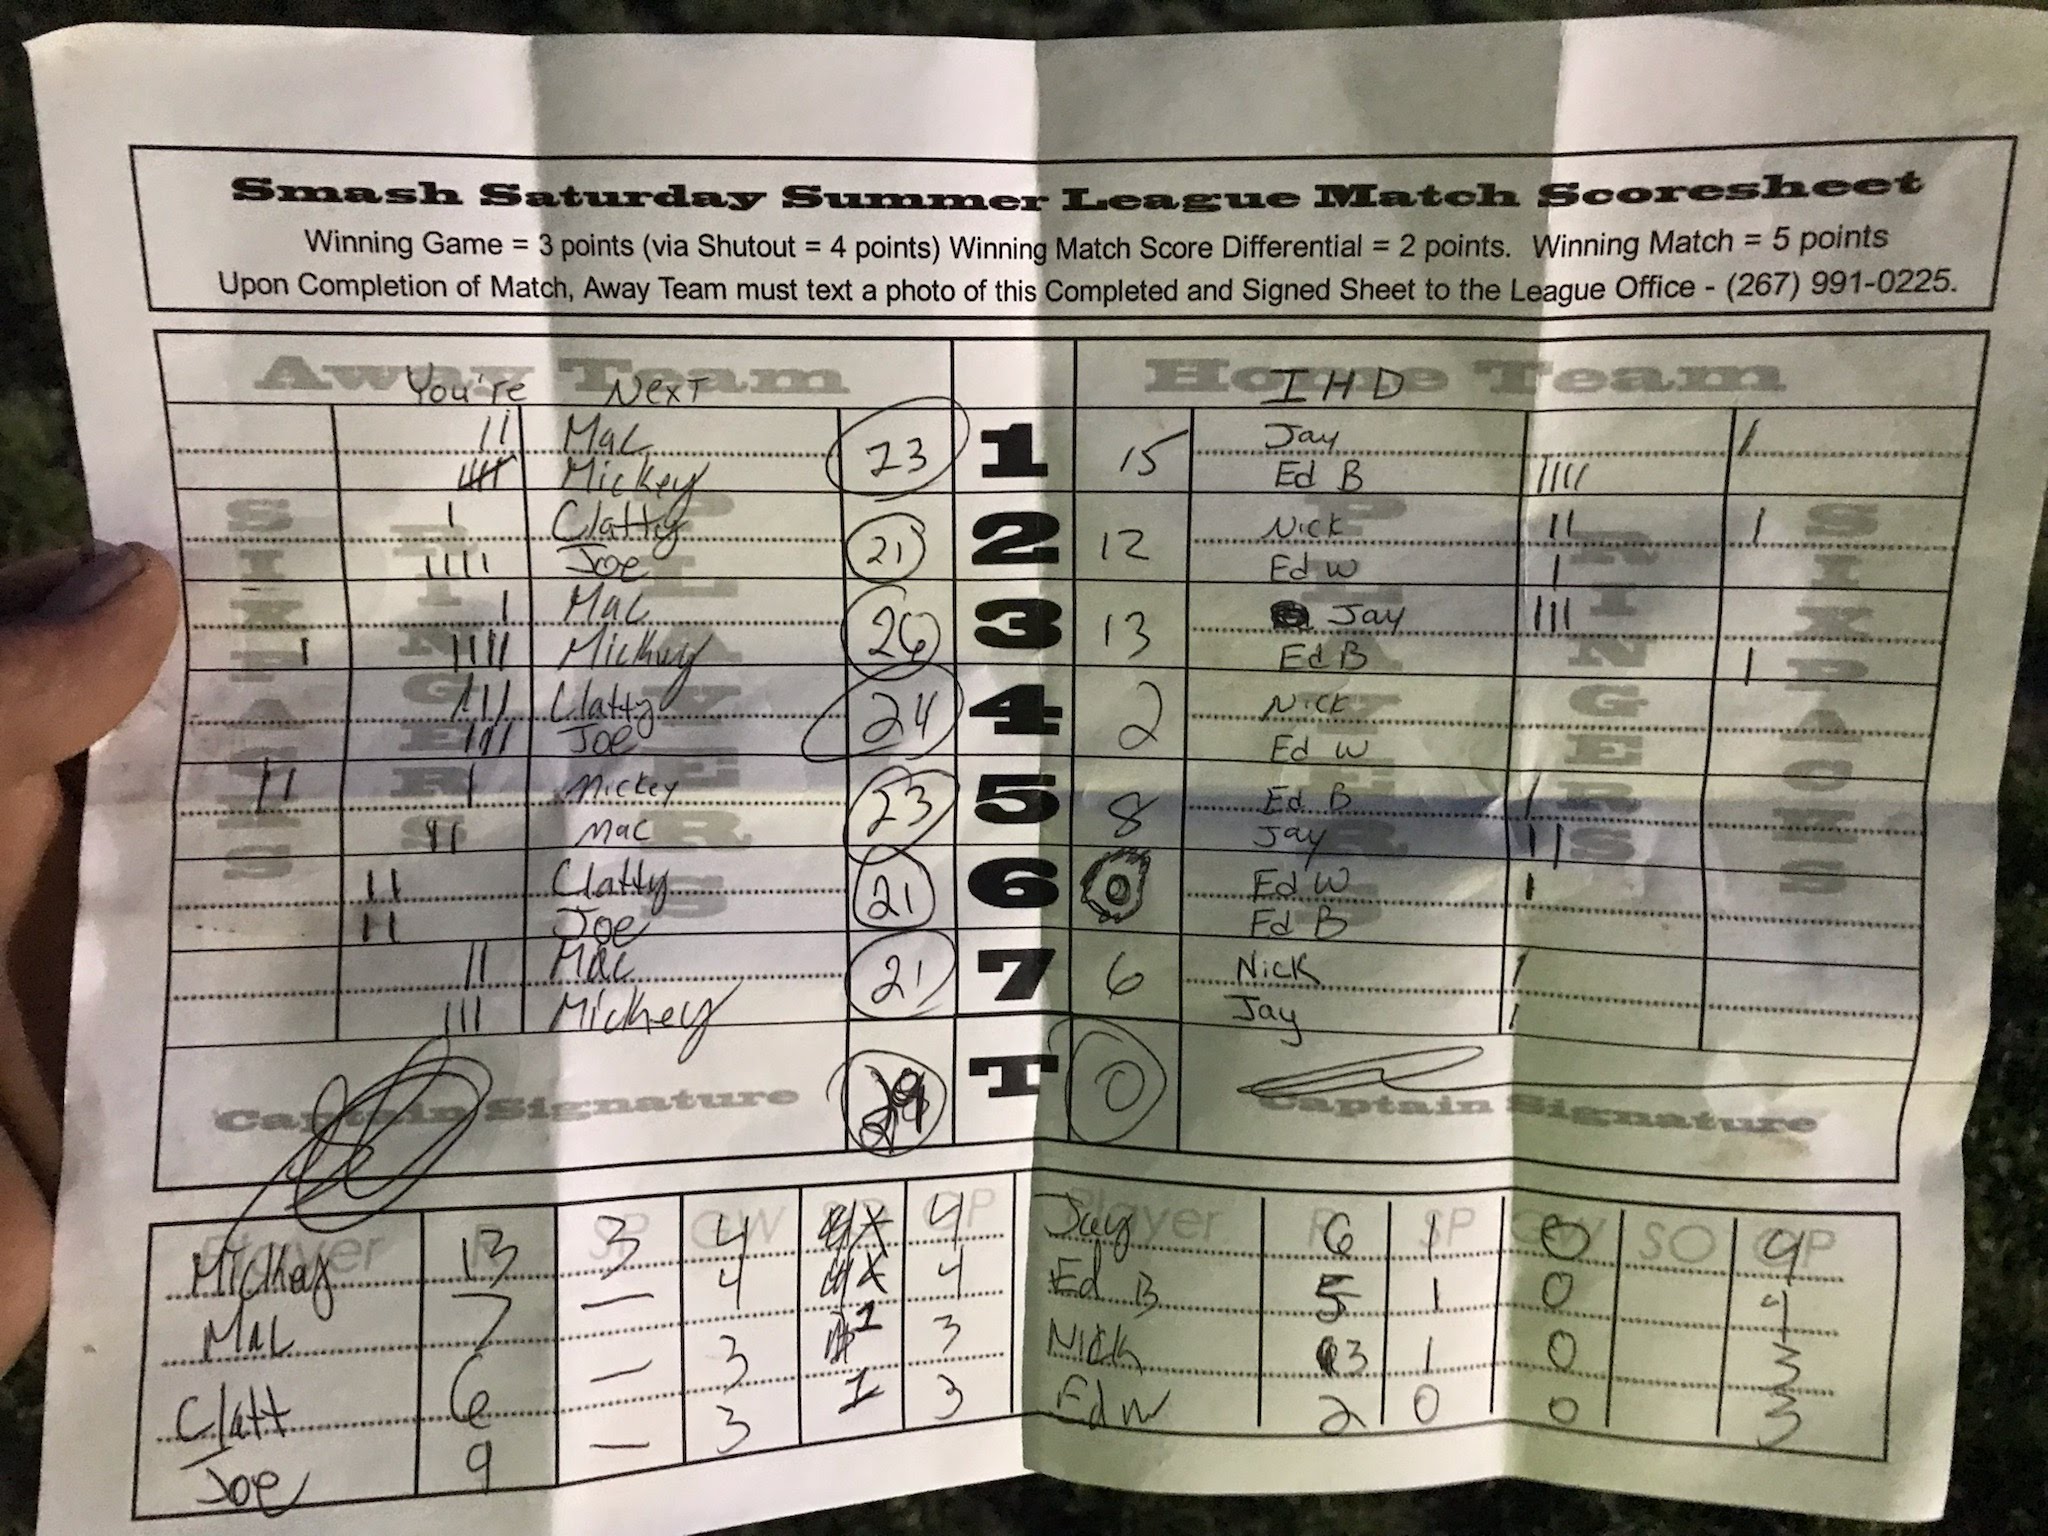 Smash Saturday Summer League Match Scoresheet
Winning Game = 3 points (via Shutout = 4 points) Winning Match Score Differential = 2 points. Winning Match = 5 points
Upon Completion of Match, Away Team must text a photo of this Completed and Signed Sheet to the League Office - (267) 991-0225.
Away Team Home Team
You're Next IHD
SIXPACKS RINGERS PLAYERS PLAYERS RINGERS SIXPACKS
Mac 23 1 15 Jay
Mickey Ed B
Clatty 21 2 12 Nick
Joe Ed W
Mac 26 3 13 Jay
Mickey Ed B
Clatty 24 4 2 Nick
Joe Ed W
Mickey 23 5 8 Ed B
Mac Jay
Clatty 21 6 0 Ed W
Joe Ed B
Mac 21 7 6 Nick
Mickey Jay
T 0
Captain Signature Captain Signature
Player R SP GW SO GP Player R SP GW SO GP
Mickey 13 3 4 4 Jay 6 1 0 4
Mac 7 — 4 4 Ed B 5 1 0 4
Clatt 6 — 3 1 3 Nick 3 1 0 3
Joe 9 — 3 1 3 Ed W 2 0 0 3